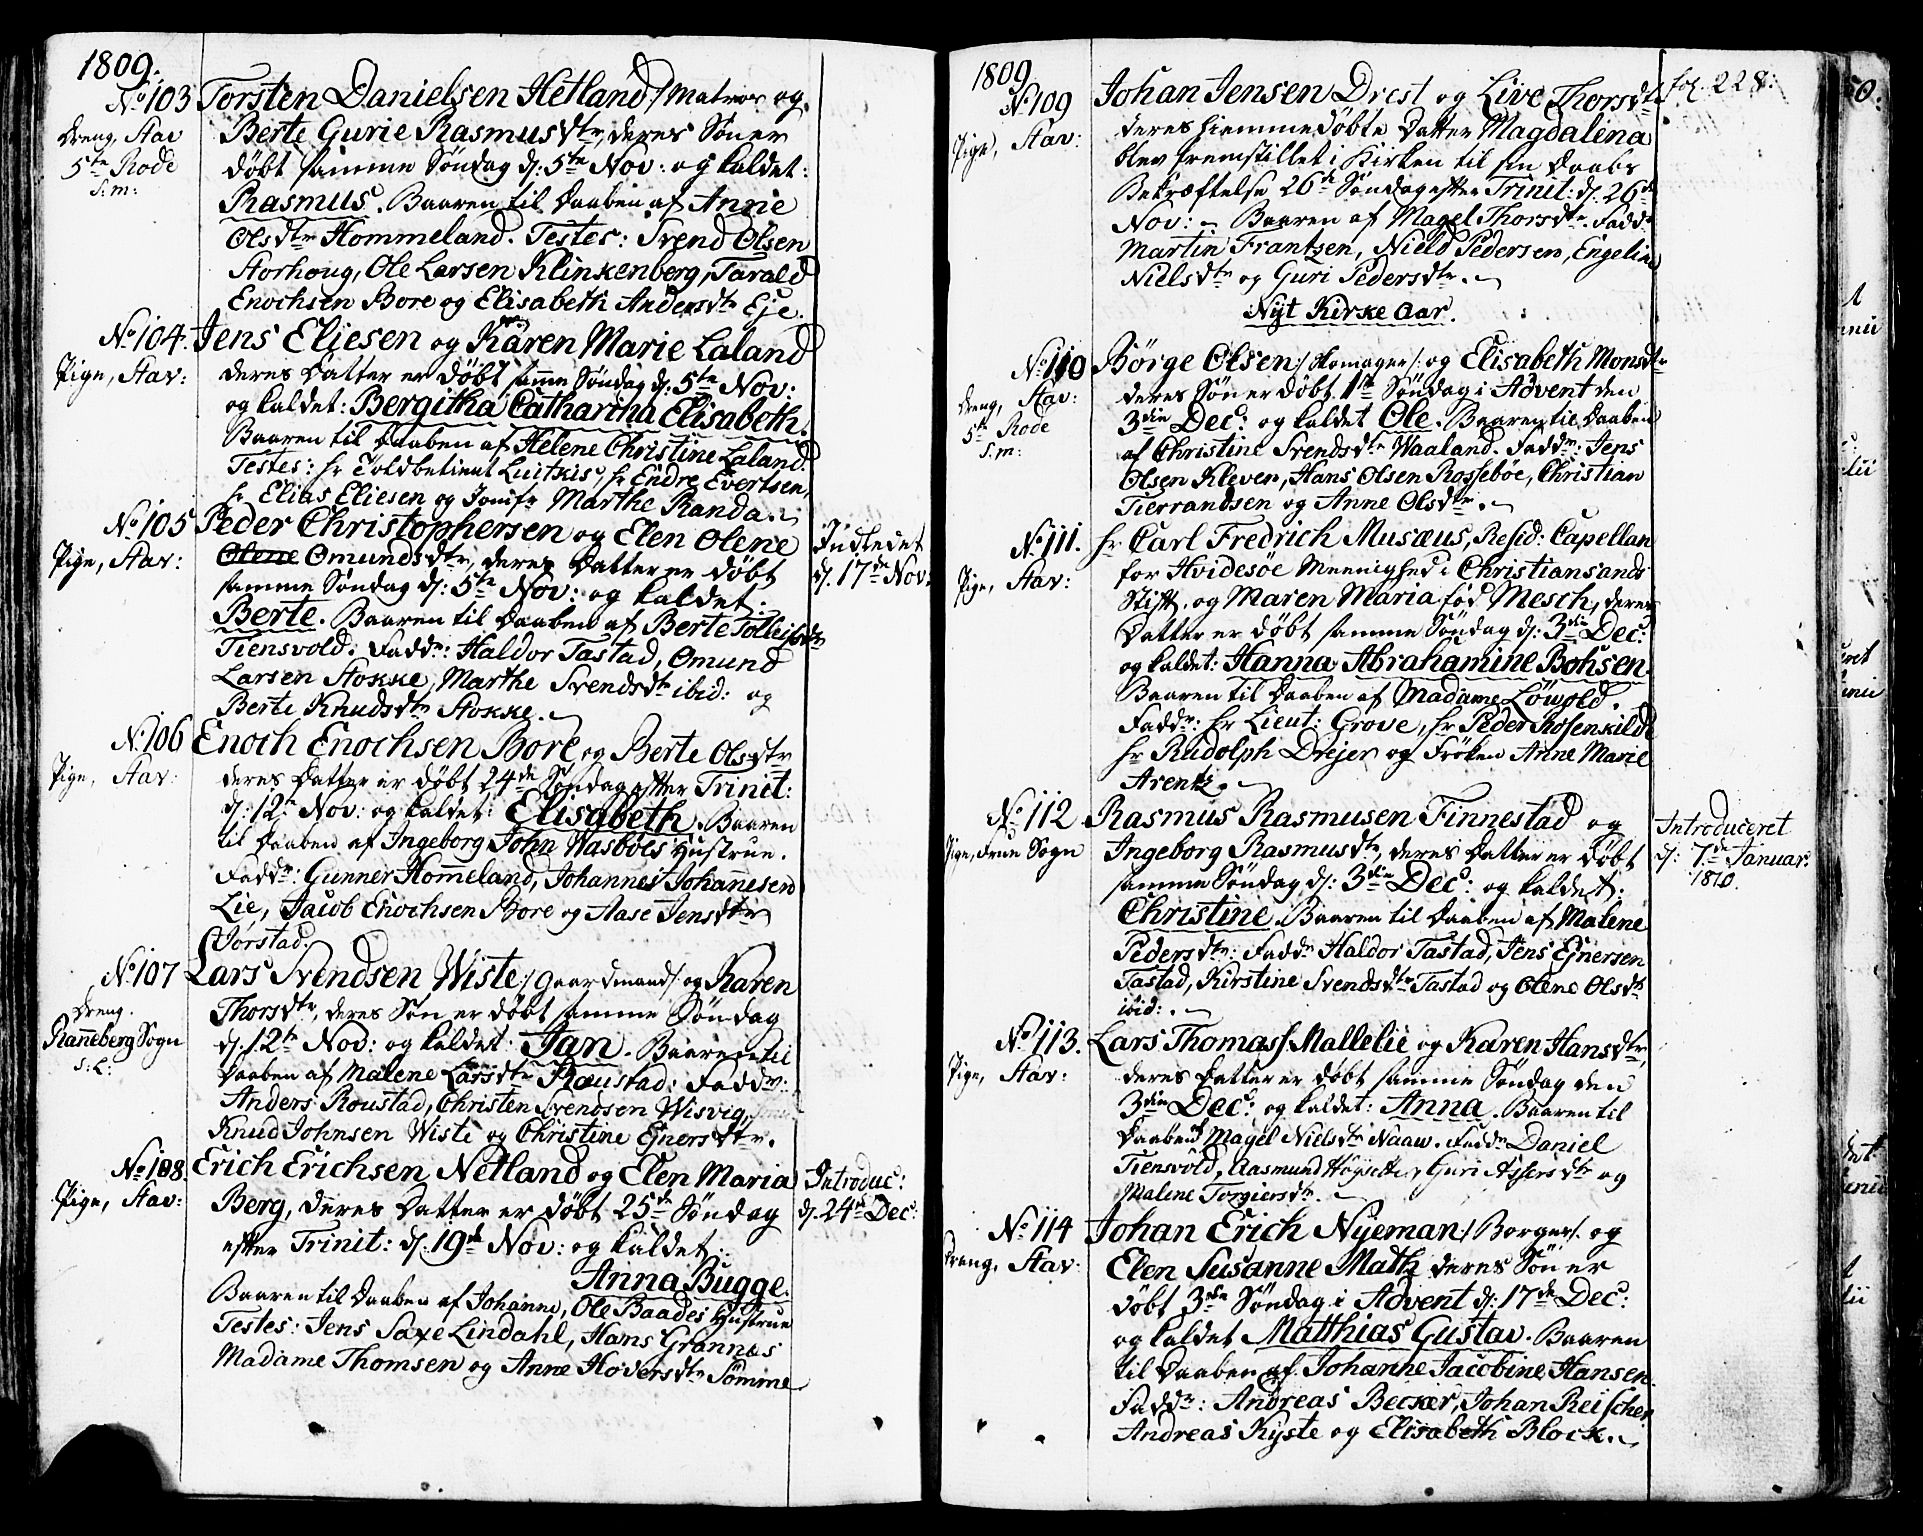 1809.
No 103 Torsten Danielsen Hetland /: Matros og
Dreng, Stav Berte Gurie Rasmusdtr, deres Søn er
5te Rode døbt samme Søndag d: 5te Nov: og kaldet:
S: m: Rasmus. Baaren til Daaben af Anne
Olsdtr Hommeland. Testes: Svend Olsen
Storhoug, Ole Larsen Klinkenberg, Tarald
Enochsen Bore og Elisabeth Andersdtr Eje.
No 104. Jens Eliesen og Karen Marie Laland
Pige, Stav: deres Datter er døbt samme Søndag d: 5te Nov:
og kaldet: Bergitha Catharina Elisabeth.
Baaren til Daaben af Helene Christine Laland.
Testes: hr Toldbetient Luitkis, hr Endre Evertsen,
hr Elias Eliesen og Jomfr Marthe Randa.
No 105 Peder Christophersen og Elen Olene Indledet
Pige, Stav: Olene Omundsdtr, deres Datter er døbt d. 17de Nov:
samme Søndag d: 5te Nov: og kaldet:
Berte. Baaren til Daaben af Berte Tolleifsdtr
Tiensvold. Faddr: Haldor Tastad, Omund
Larsen Stokke, Marthe Svendsdtr ibid: og
Berte Knudsdtr Stokke.
No 106 Enoch Enochsen Bore og Berte Olsdtr
Pige, Stav: deres Datter er døbt 24de Søndag efter Trinit:
d: 12te Nov: og kaldet: Elisabeth. Baaren
til Daaben af Ingeborg John Wasbøes Hustrue.
Faddr: Gunner Homeland, Johannes Johannesen
Lie, Jacob Enochsen Bore og Aase Jensdtr
Jørstad.
No 107 Lars Svendsen Wiste /: Gaardmand /: og Karen
Dreng. Thorsdtr, deres Søn er døbt samme Søndag
Raneberg Sogn d. 12te Nov: og kaldet: Jan. Baaren til
s: L: Daaben af Malene Larsdtr Roustad. Faddr:
Anders Roustad, Christen Svendsen Wisvig,
Knud Johnsen Wiste og Christine Ejnersdtr.
No 108. Erich Erichsen Netland og Elen Maria Introduc:
Pige, Stav: Berg, deres Datter er døbt 25de Søndag d. 24de Dec:
efter Trinit: d. 19de Nov: og kaldet:
Anna Bugge.
Baaren til Daaben af Johanne, Ole Baades Hustrue
Testes: Jens Saxe Lindahl, Hans Grannæs
Madame Thomsen og Anne Hoversdtr Sømme
1809 fol. 228:
No 109 Johan Jensen Drest og Live Thorsdtr
Pige, Stav: deres hiemmedøbte Datter Magdalena
blev fremstillet i Kirken til sin Daabs
Bekræftelse 26de Søndag efter Trinit: d. 26de
Nov: Baaren af Magel Thorsdtr. Faddr
Martin Frantzen, Niels Pedersen, Engeline
Nielsdtr og Guri Pedersdtr.
Nyt Kirke Aar.
No 110 Børge Olsen /: Skomager /: og Elisabeth Monsdtr
Dreng, Stav: deres Søn er døbt 1ste Søndag i Advent den
5te Rode 3die Dec: og kaldet Ole. Baaren til Daaben
S: m: af Christine Svendsdtr Waaland. Faddr: Jens
Olsen Kleven, Hans Olsen Rossebøe, Christian
Tierrandsen og Anne Olsdtr.
No 111. hr Carl Fredrich Musæus, Resid: Capellan
Pige, Stav: for Hvidesøe Meenighed i Christiansands
Stift. og Maren Maria fød Mesch, deres
Datter er døbt samme Søndag d: 3die Dec:
og kaldet: Hanna Abrahamine Bohsen.
Baaren til Daaben af Madame Løwold.
Faddr: hr Lieut: Grove, hr Peder Rosenkilde
hr Rudolph Drejer og Frøken Anne Marie
Arentz.
No 112 Rasmus Rasmusen Finnestad og Introduceret
Pige, Frue Sogn Ingeborg Rasmusdtr, deres Datter er døbt d: 7de Januar:
samme Søndag d: 3die Dec: og kaldet: 1810.
Christine. Baaren til Daaben af Malene
Pedersdtr: Faddr Haldor Tastad, Jens Ejnersen
Tastad, Kirstine Svendsdtr Tastad og Olene Olsdtr
ibid:
No 113. Lars Thomass. Mallelie og Karen Hansdtr,
Pige, Stav: deres Datter er døbt samme Søndag den
3die Dec: og kaldet: Anna. Baaren til
Daaben Magel Nielsdtr Naaw. Faddr Daniel
Tiensvold, Aasmund Høysette, Guri Assersdtr og
Malene Torgiersdtr.
No 114 Johan Erich Nyeman /: Borger /: og
Dreng, Stav: Elen Susanne Matz deres Søn er
døbt 3de Søndag i Advent d: 17de Dec:
og kaldet Matthias Gustav. Baaren
til Daaben af Johanne Jacobine Hansen.
Faddr: Andreas Becker, Johan Reischer
Andreas Kyste og Elisabeth Block.